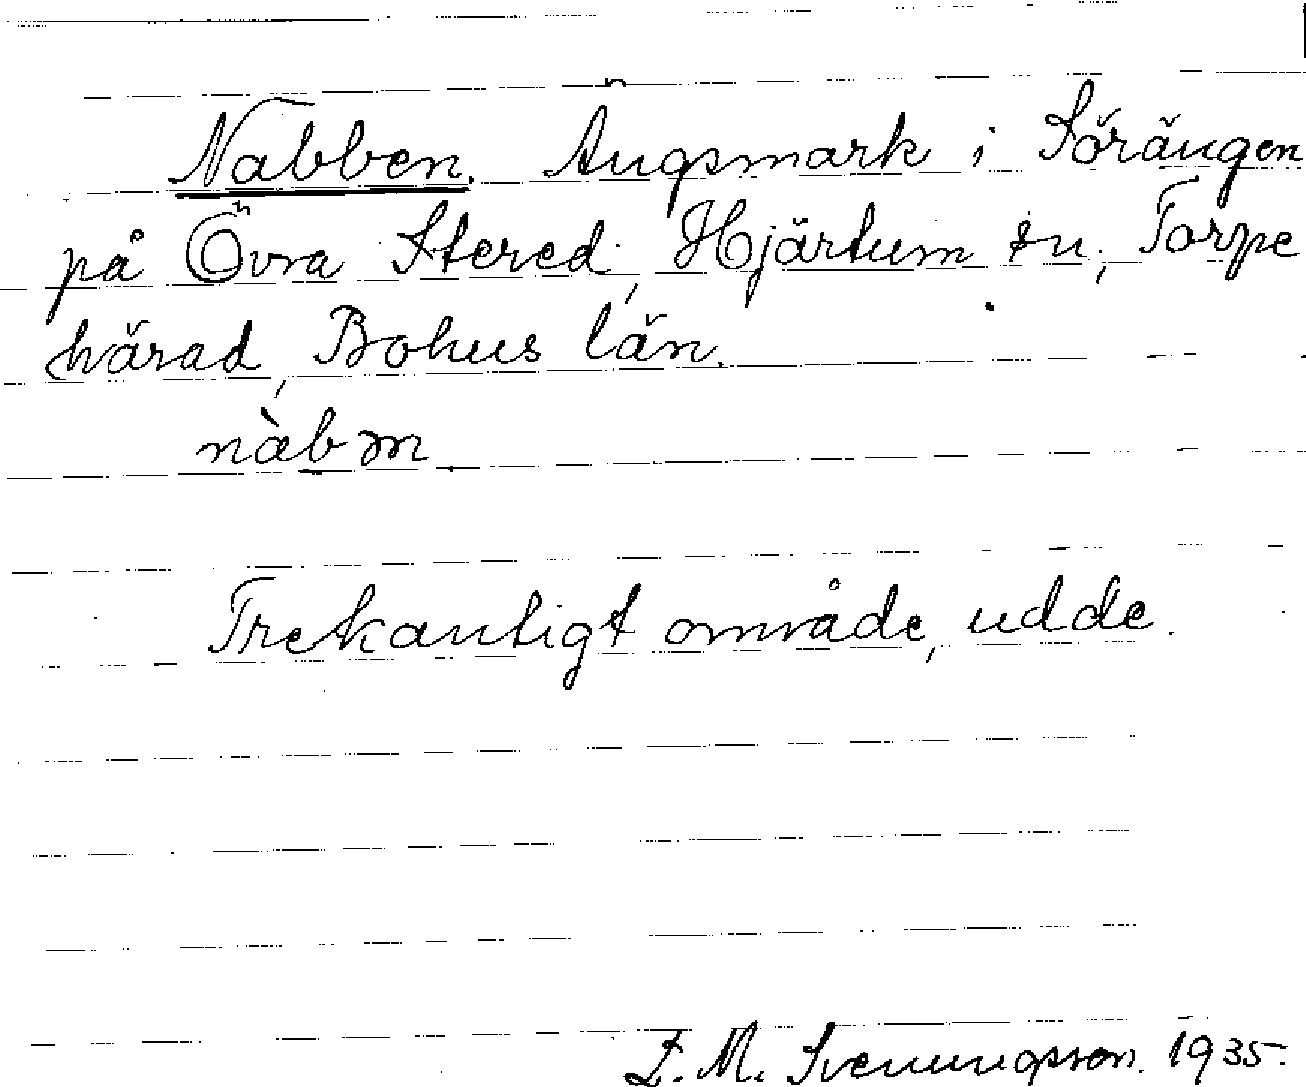 Nabben. Ängsmark i Sörängen
på Övra Stered, Hjärtum sn, Torpe
härad, Bohus län.
nàbm
Trekantigt område, udde.
L. M. Svenungsson. 1935.